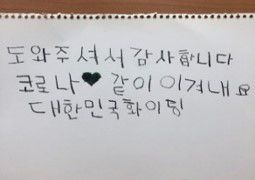 도와주셔서 감사합니다
코로나♥ 같이 이겨내요
대한민국화이팅